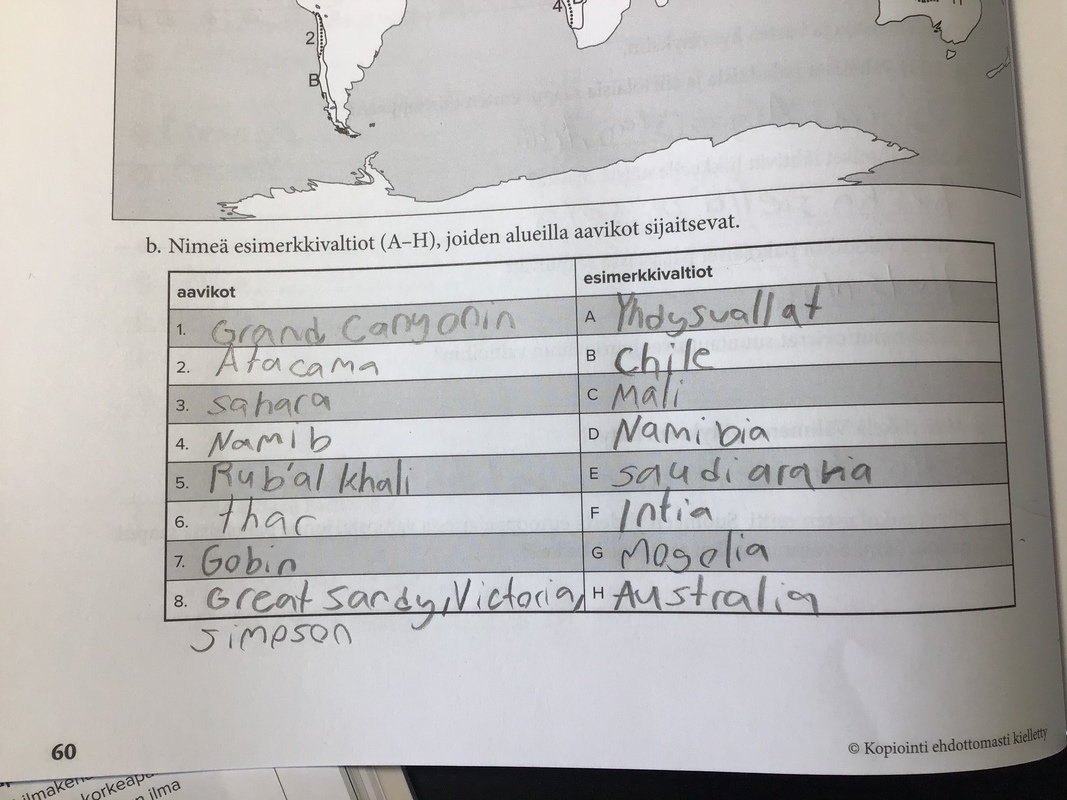 4
2
B
b. Nimeä esimerkkivaltiot (A–H), joiden alueilla aavikot sijaitsevat.
aavikot esimerkkivaltiot
1. Grand Canyonin A Yhdysvallat
2. Atacama B Chile
3. sahara C Mali
4. Namib D Namibia
5. Rub'al khali E saudi arabia
6. thar F Intia
7. Gobin G Mogolia
8. Great Sandy, Victoria, H Australia
Simpson
60
© Kopiointi ehdottomasti kielletty
korkeapa
ilma